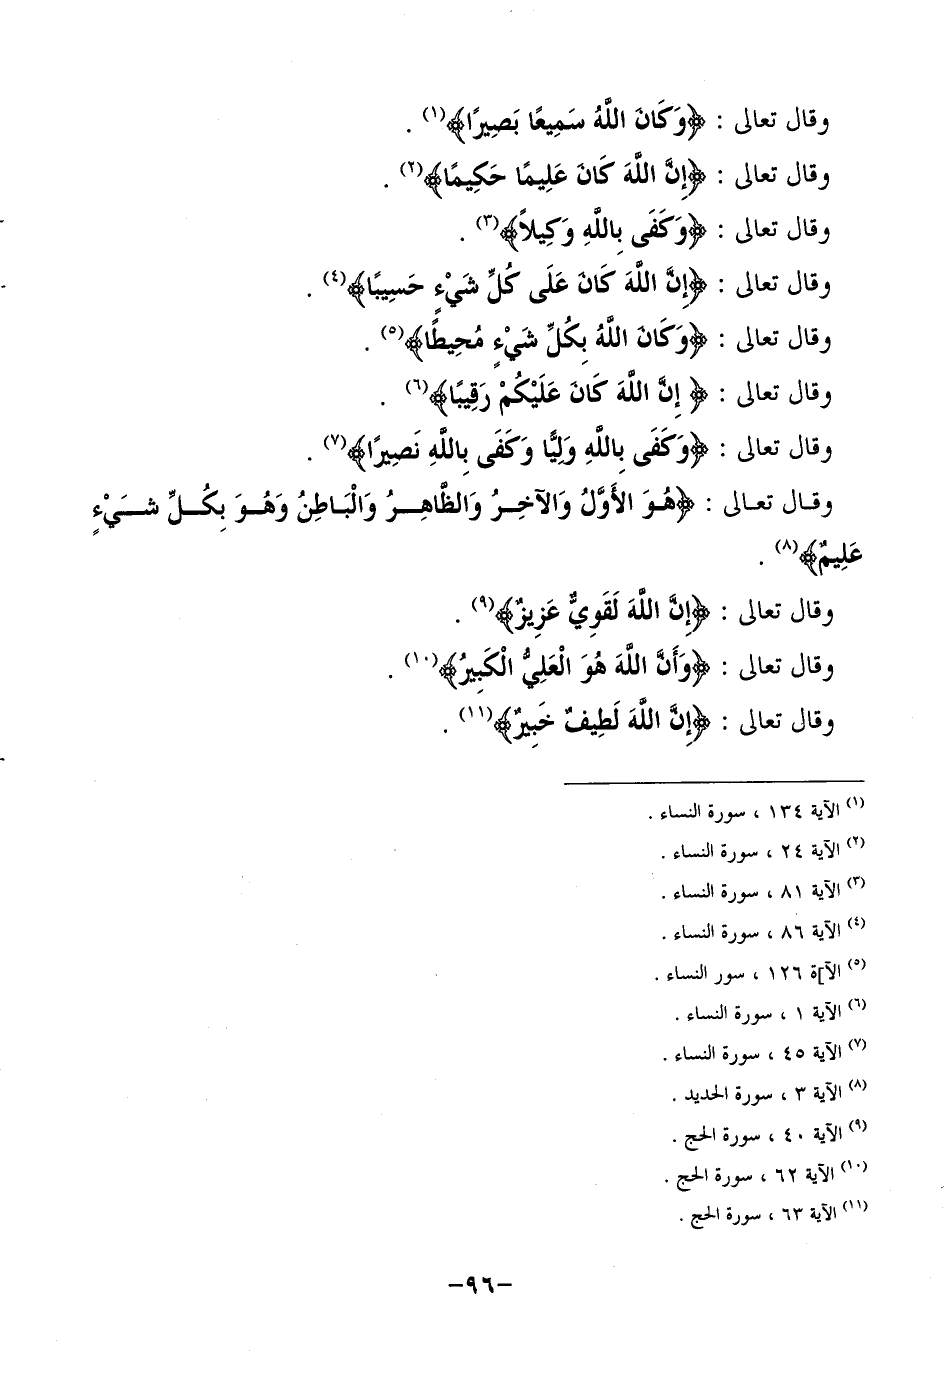 وقال تعالى : ﴿وَكَانَ اللَّهُ سَمِيعًا بَصِيرًا﴾(١) .
وقال تعالى : ﴿إِنَّ اللَّهَ كَانَ عَلِيمًا حَكِيمًا﴾(٢) .
وقال تعالى : ﴿وَكَفَى بِاللَّهِ وَكِيلاً﴾(٣) .
وقال تعالى : ﴿إِنَّ اللَّهَ كَانَ عَلَى كُلِّ شَيْءٍ حَسِيبًا﴾(٤) .
وقال تعالى : ﴿وَكَانَ اللَّهُ بِكُلِّ شَيْءٍ مُحِيطًا﴾(٥) .
وقال تعالى : ﴿ إِنَّ اللَّهَ كَانَ عَلَيْكُمْ رَقِيبًا﴾(٦) .
وقال تعالى : ﴿وَكَفَى بِاللَّهِ وَلِيًّا وَكَفَى بِاللَّهِ نَصِيرًا﴾(٧) .
وقال تعالى : ﴿هُوَ الأَوَّلُ وَالآخِرُ وَالظَّاهِرُ وَالْبَاطِنُ وَهُوَ بِكُلِّ شَيْءٍ
عَلِيمٌ﴾(٨) .
وقال تعالى : ﴿إِنَّ اللَّهَ لَقَوِيٌّ عَزِيزٌ﴾(٩) .
وقال تعالى : ﴿وَأَنَّ اللَّهَ هُوَ الْعَلِيُّ الْكَبِيرُ﴾(١٠) .
وقال تعالى : ﴿إِنَّ اللَّهَ لَطِيفٌ خَبِيرٌ﴾(١١) .
(١) الآية ١٣٤ ، سورة النساء .
(٢) الآية ٢٤ ، سورة النساء .
(٣) الآية ٨١ ، سورة النساء .
(٤) الآية ٨٦ ، سورة النساء .
(٥) الآ]ة ١٢٦ ، سور النساء .
(٦) الآية ١ ، سورة النساء .
(٧) الآية ٤٥ ، سورة النساء .
(٨) الآية ٣ ، سورة الحديد .
(٩) الآية ٤٠ ، سورة الحج .
(١٠) الآية ٦٢ ، سورة الحج .
(١١) الآية ٦٣ ، سورة الحج .
-٩٦-